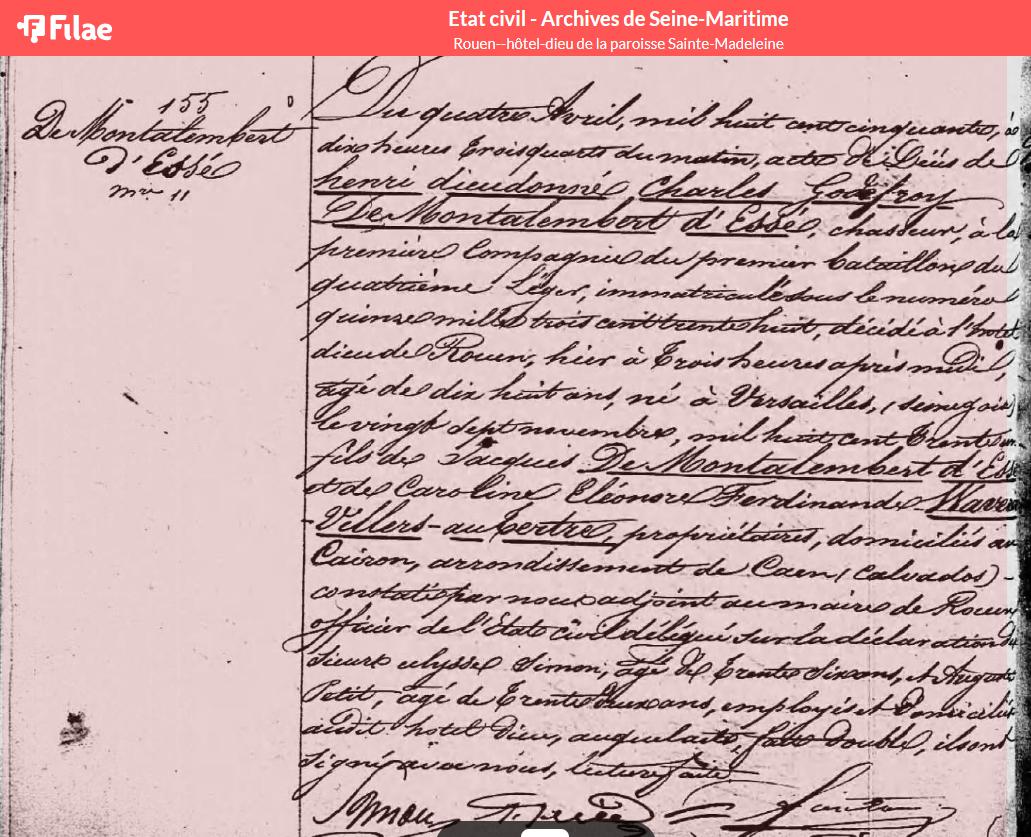 Filae
Etat civil - Archives de Seine-Maritime
Rouen--hôtel-dieu de la paroisse Sainte-Madeleine
155
De Montalembert
D'Essé
Du quatre Avril, mil huit cent cinquante, à
dix heures trois quarts du matin, acte de Décès de
henri dieudonné Charles Godefroy
De Montalembert d'Essé, chasseur, à la
première Compagnie du premier bataillon du
quatrième Léger, immatriculé sous le numéro
quinze mille trois cent trente huit, décédé à l'hotel
dieu de Rouen, hier à trois heures après midi,
agé de dix huit ans, né à Versailles, (seine &
le vingt sept novembre, mil huit cent trente
fils de Jacques De Montalembert d'Essé
et de Caroline Eléonore Ferdinande
Villers-au-tertre, propriétaires, domiciliés au
Cairon, arrondissement de Caen (Calvados) -
constaté par nous adjoint au maire de Rouen
officier de l'état civil délégué sur la déclaration du
sieurs ulysse Simon, agé de trente six ans, et Auguste
Petit, agé de trente deux ans, employés et domiciliés
audit hotel Dieu, auquel acte, fait double, ils ont
signé avec nous, lecture faite.
Simon